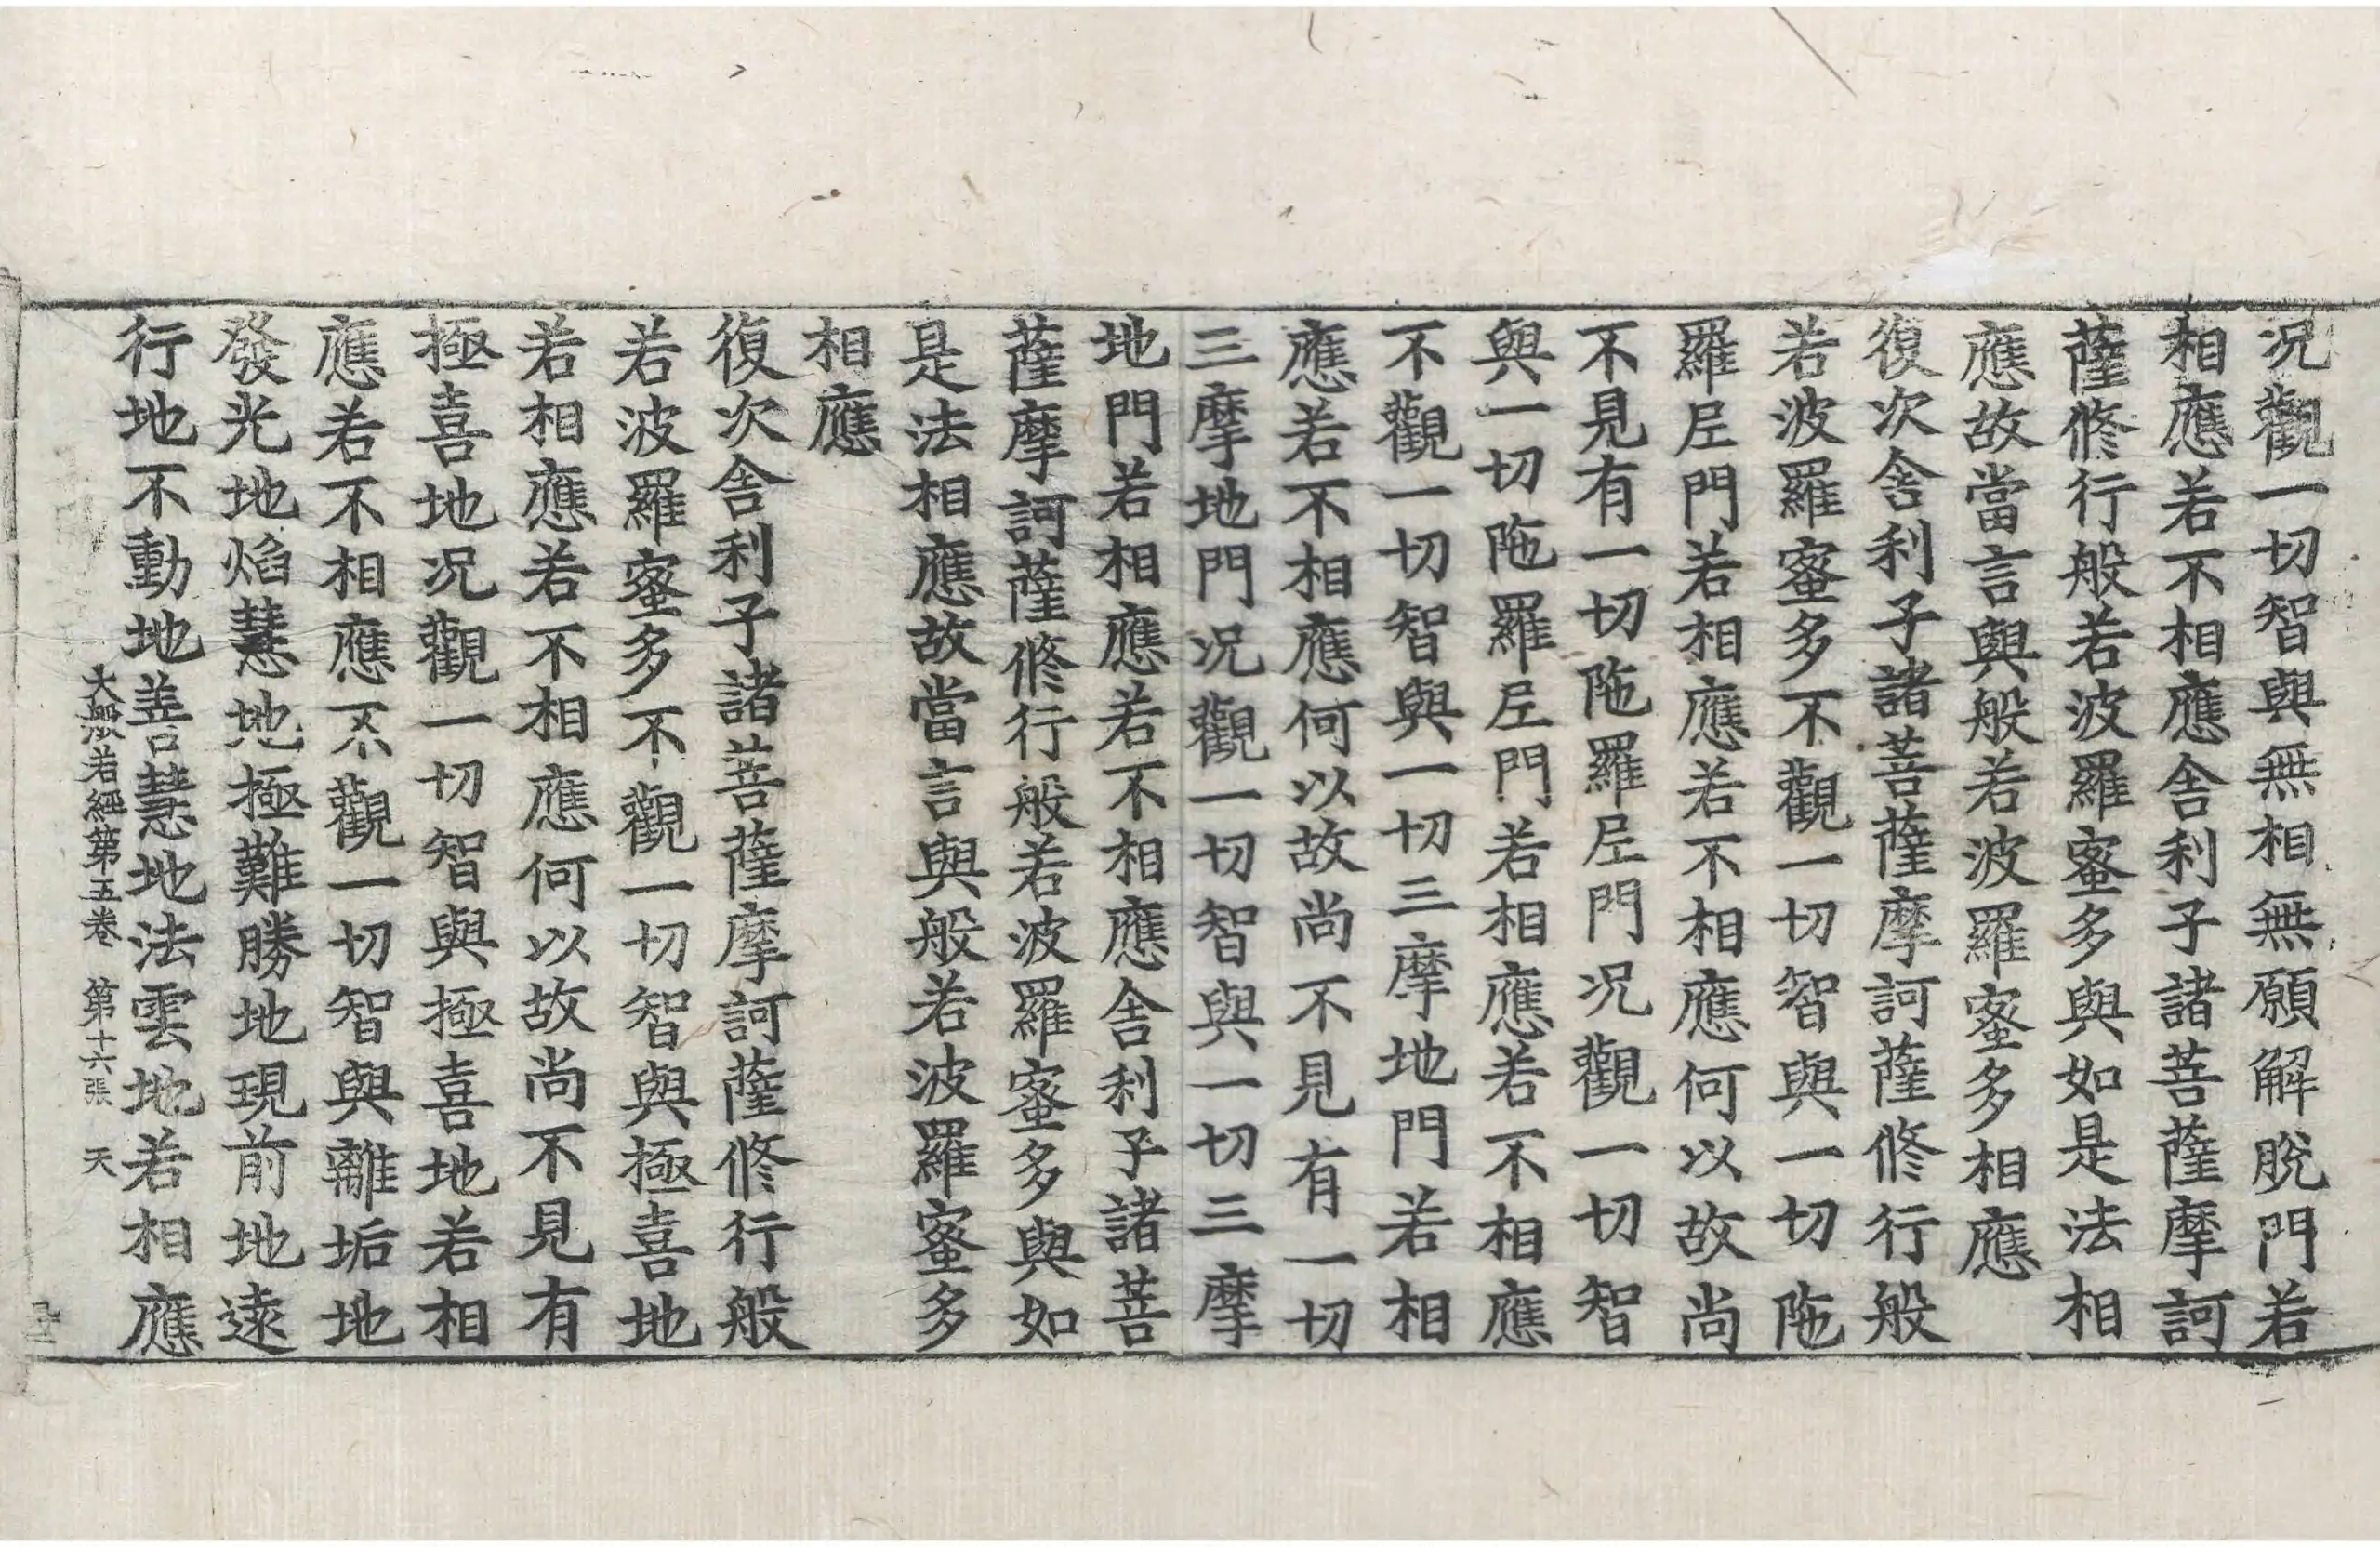 况觀一切智與無相無願解脫門若
相應若不相應舎利子諸菩薩摩訶
薩修行般若波羅蜜多與如是法相
應故當言與般若波羅蜜多相應
復次舎利子諸菩薩摩訶薩修行般
若波羅蜜多不觀一切智與一切陁
羅𡰱門若相應若不相應何以故尚
不見有一切陁羅𡰱門况觀一切智
與一切陁羅𡰱門若相應若不相應
不觀一切智與一切三摩地門若相
應若不相應何以故尚不見有一切
三摩地門况觀一切智與一切三摩
地門若相應若不相應舎利子諸菩
薩摩訶薩修行般若波羅蜜多與如
是法相應故當言與般若波羅蜜多
相應
復次舎利子諸菩薩摩訶薩修行般
若波羅蜜多不觀一切智與極喜地
若相應若不相應何以故尚不見有
極喜地况觀一切智與極喜地若相
應若不相應不觀一切智與離垢地
發光地焰慧地極難勝地現前地遠
行地不動地善慧地法雲地若相應
大般若經第五卷 第十六張 天